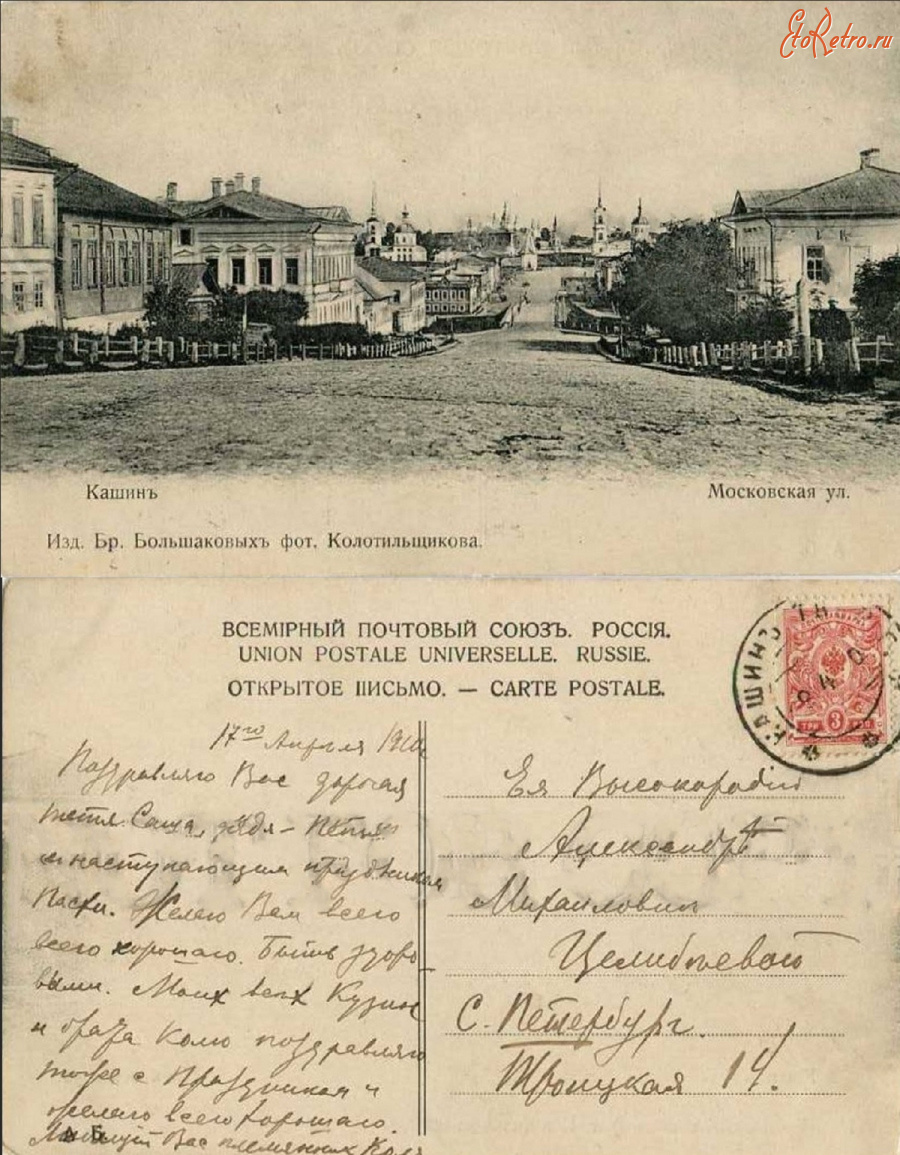 EtoRetro.ru
Кашинъ
Московская ул.
Изд. Бр. Большаковыхъ фот. Колотильщикова.
ВСЕМІРНЫЙ ПОЧТОВЫЙ СОЮЗЪ. РОССІЯ.
UNION POSTALE UNIVERSELLE. RUSSIE.
ОТКРЫТОЕ ПИСЬМО. — CARTE POSTALE.
КАШИНЪ
3
17го Апреля
Поздравляю Вас дорогая
тетя Саша, дядя Петя
с наступающим праздником
Пасхи. Желаю Вам всего
всего хорошаго. Быть здоро
выми. Моих всех Кузин
и брата Колю поздравляю
тоже с Праздником и
желаю всего хорошаго.
Любящий Вас племянник Коля
Ея Высокородiю
Александрѣ
Михаиловнѣ
Целибѣевой
С. Петербург.
Троицкая 14.